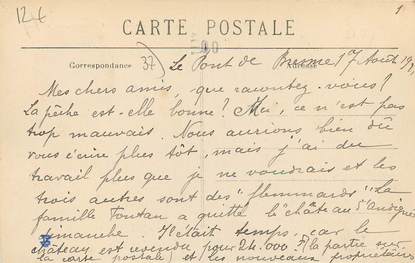 12 €
1
CARTE POSTALE
Correspondance
37
00
Adresse
Le Pont de Bresme 17 Août 19
Mes chers amis, que racontez-vous?
La pêche est-elle bonne? Moi, ce n'est pas
trop mauvais. Nous aurions bien dû
vous écrire plus tôt, mais j'ai du
travail plus que je ne voudrais et les
trois autres sont des "flemmards" La
famille Toutan a quitté le château d'
dimanche. Il était temps, car le
château est revendu pour 24.000 F (la partie sur
la carte postale) et les nouveaux propriétaires